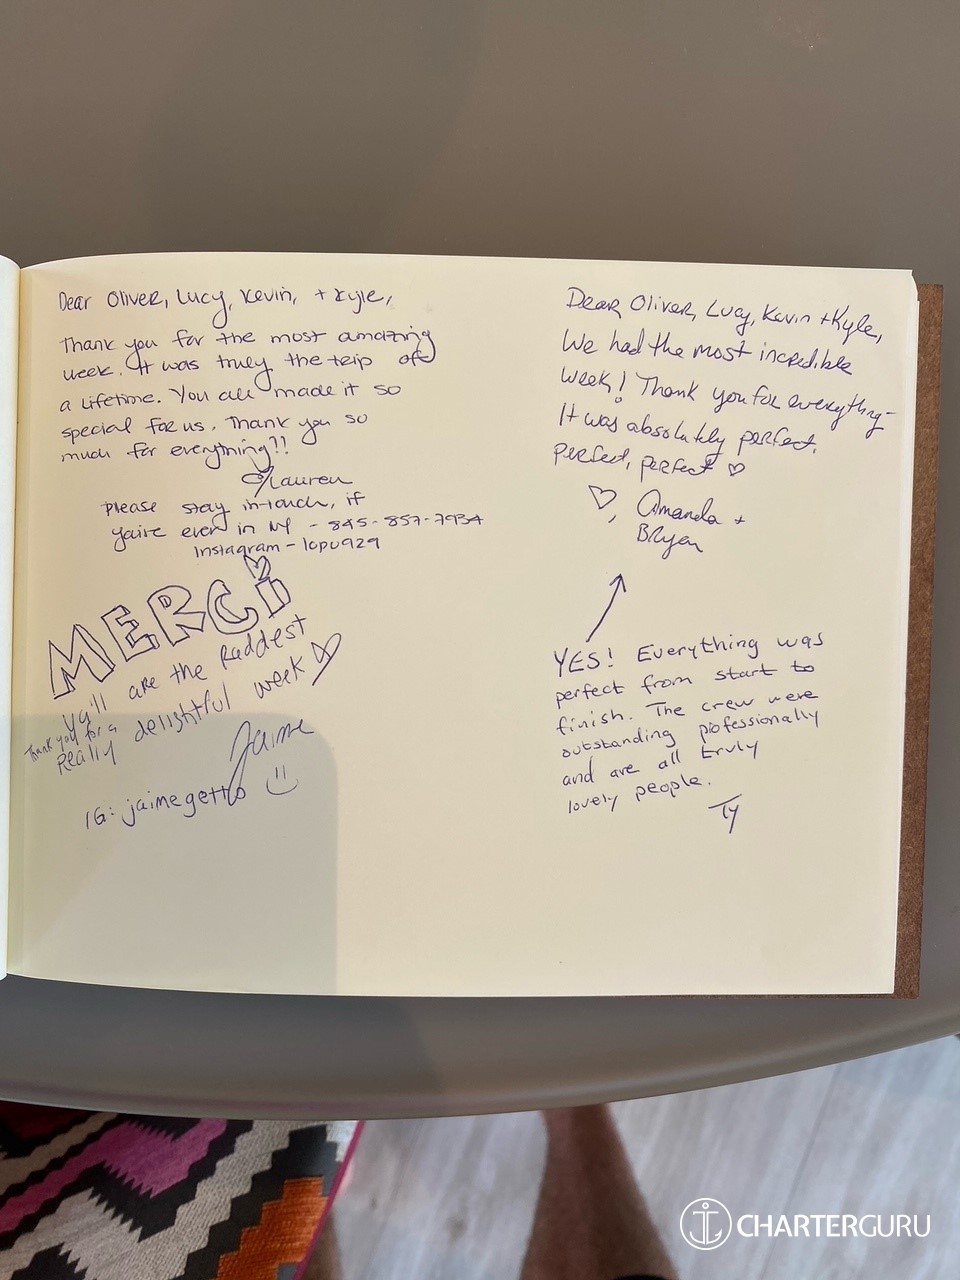 Dear Oliver, Lucy, Kevin, + Kyle,
Thank you for the most amazing
week. It was truly the trip of
a lifetime. You all made it so
special for us. Thank you so
much for everything!!
Lauren
please stay in touch, if
ya're ever in NY - 845-857-7934
Instagram - lopu929
MERCI
Ya'll are the raddest
Thank you for a
really delightful week
Jaime
IG: jaimegetto
Dear Oliver, Lucy, Kevin + Kyle,
We had the most incredible
week! Thank you for everything-
It was absolutely perfect,
perfect, perfect ♡
♡, Amanda +
Bryan
YES! Everything was
perfect from start to
finish. The crew were
outstanding professionally
and are all truly
lovely people.
Ty
CHARTERGURU